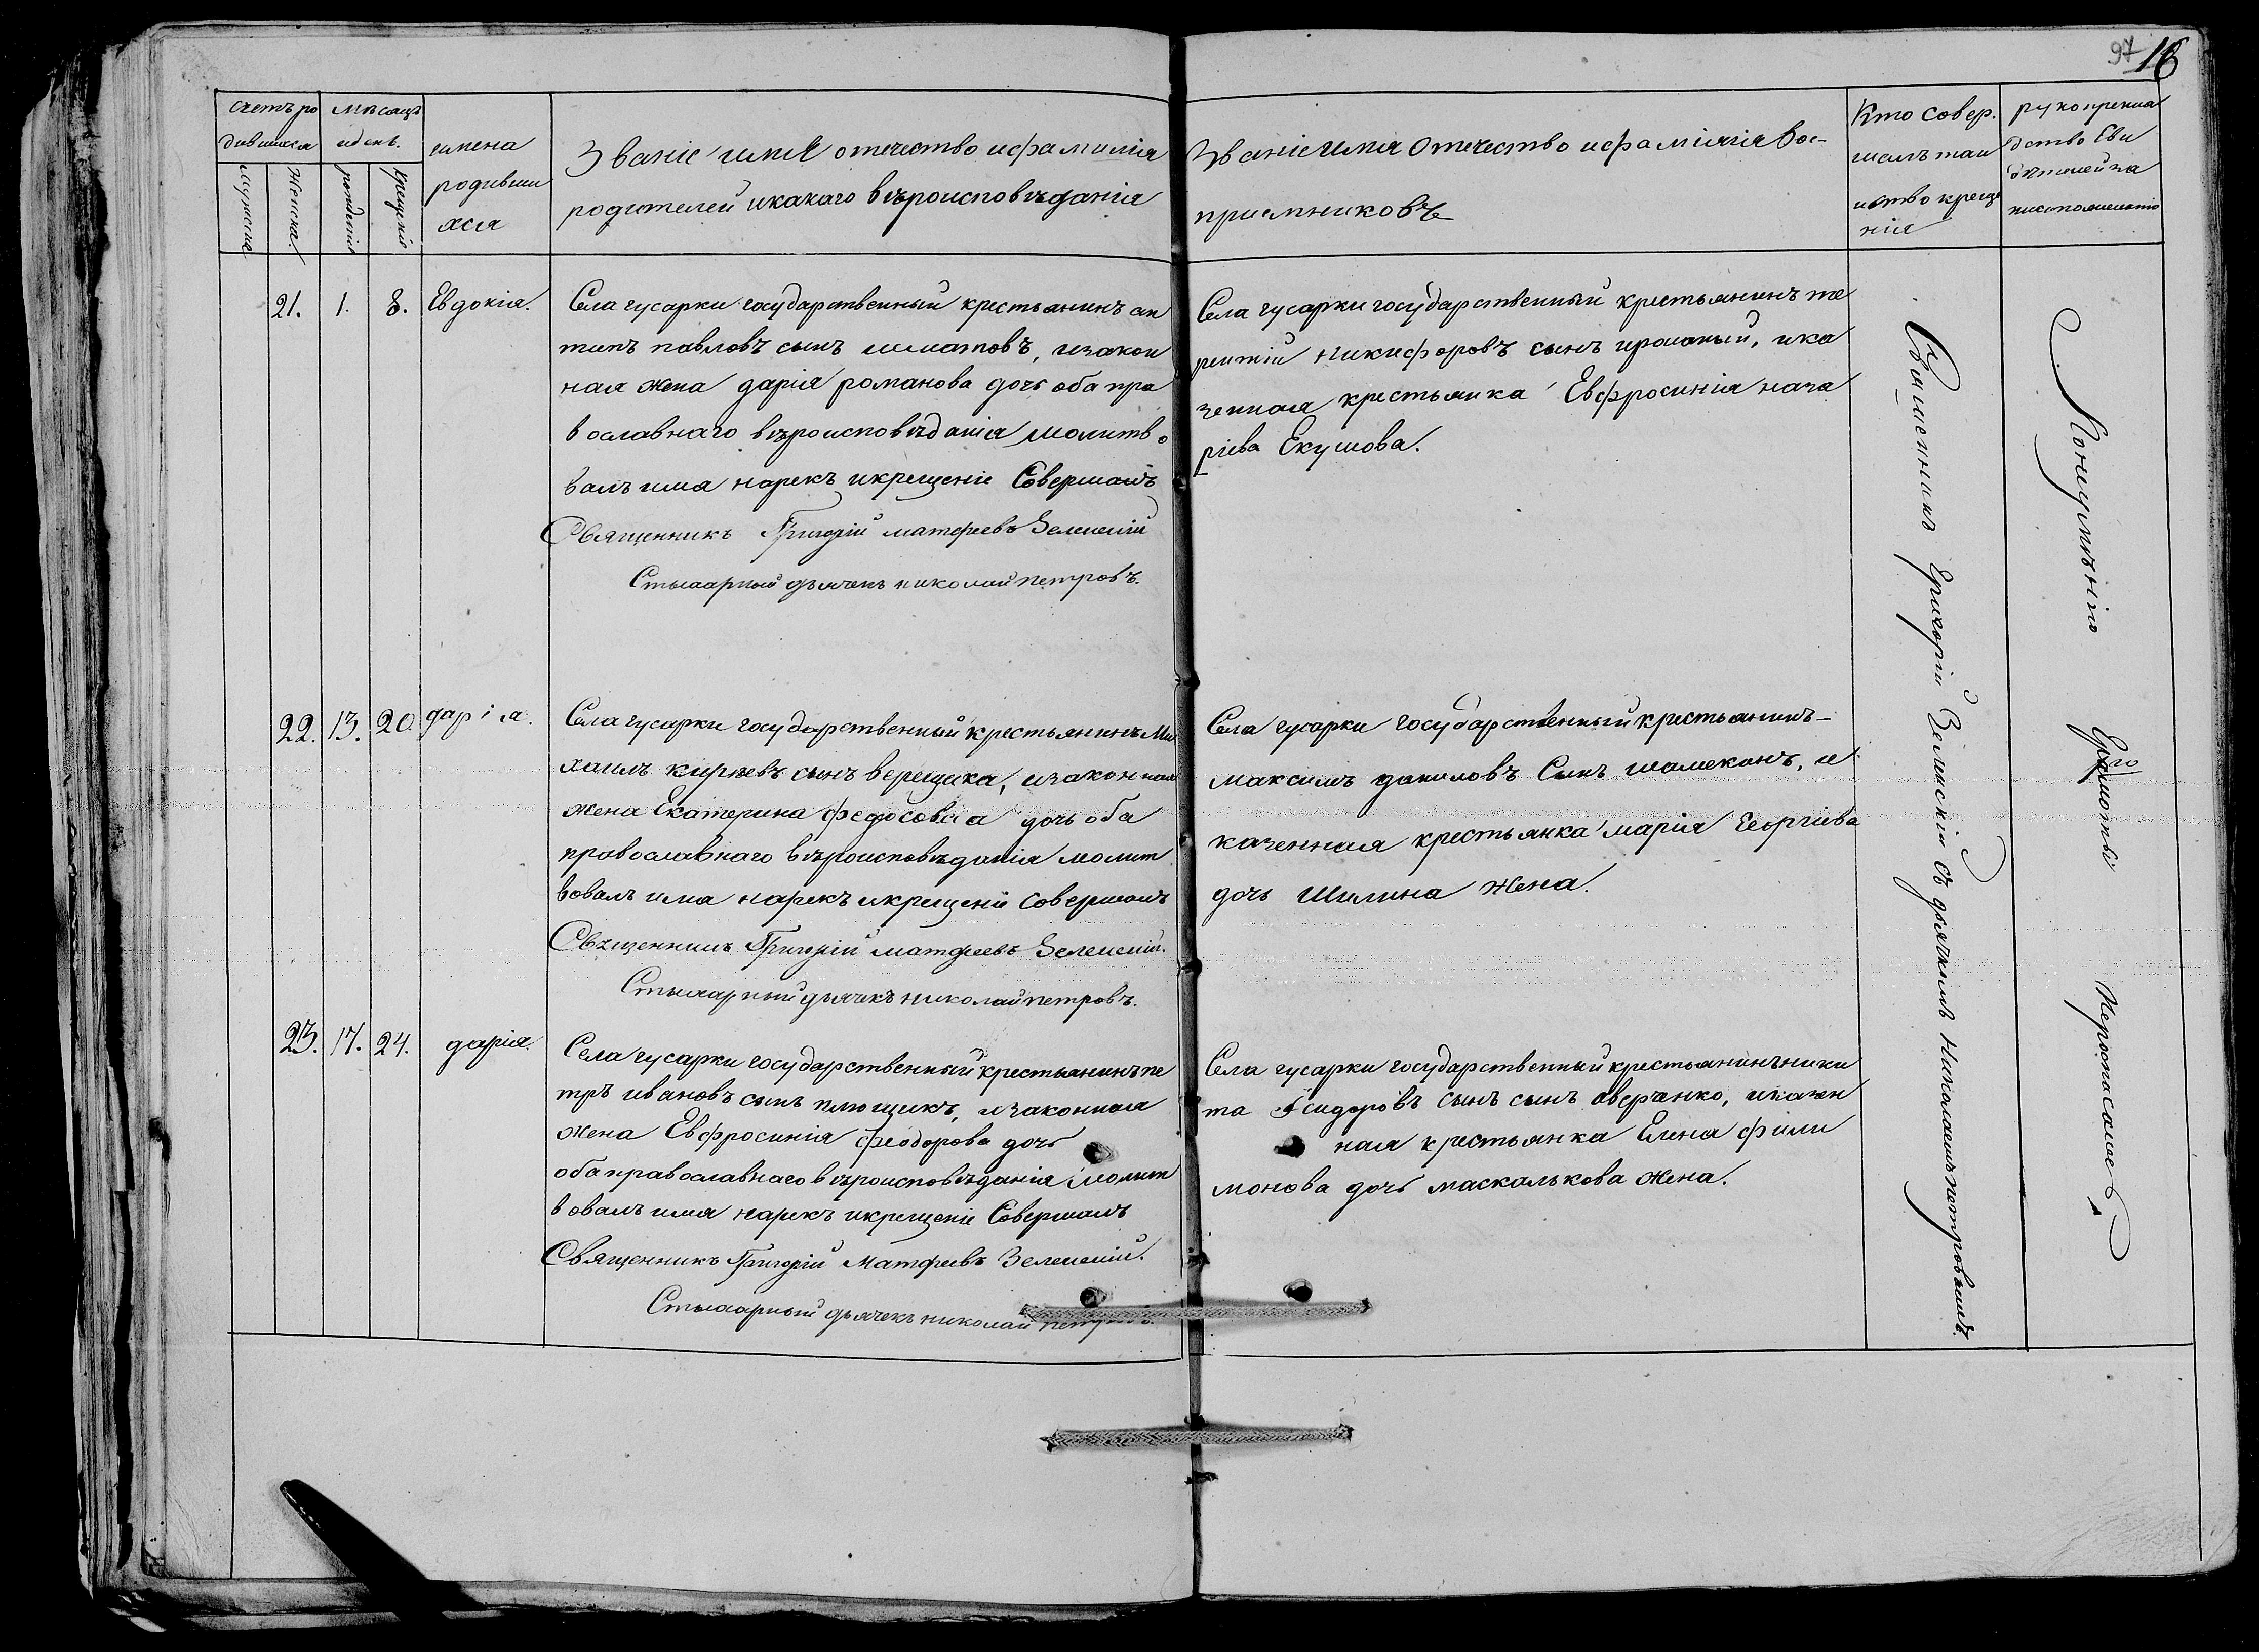 97 16
Счетъ ро
дившихся
Мѣсяцъ
и день.
имена
родивши
хся
Званіе имя отечество и фамилія
родителей и какаго вѣроисповѣданія
Званіе имя отечество и фаміліія вос-
приемниковъ
Кто совер.
шалъ таи
нство креще
нія
рукоприкла
дство Сви
дѣтелей за
писи по желанію
мужска
Женска.
рожденія
крещенія
21. 1. 8. Евдокія.
Села гусарки государственный крестьянинъ ан
типъ павловъ сынъ шматовъ, и закон
ная жена дарія романова дочь оба пра
вославнаго вѣроисповѣданія молитво
валъ имя нарекъ и крещеніе Совершалъ
Священникъ Григорій матфеевъ Зеленскій
Стихарный дьячекъ николай петровъ.
Села гусарки государственный крестьянинъ те
рентій никифоровъ сынъ ,и ка
зенная крестьянка Евфросинія наза
ріева Екушова.
22. 13. 20. даріа.
Села гусарки государственный крестьянинъ Ми
хаилъ киріевъ сынъ верещака, и законная
жена Екатерина федосова дочь оба
православнаго вѣроисповѣданія молит
вовалъ имя нарекъ и крещеніе совершалъ
Священникъ Григорій матфеевъ Зеленскій.
Стихарный дьячекъ николай петровъ.
Села гусарки государственный крестьянинъ-
максимъ даниловъ Сынъ шамеканъ, и
казенная крестьянка марія Георгіева
дочь Шилина жена.
23. 17. 24. дарія.
Села гусарки государственный крестьянинъ пе
тръ ивановъ сынъ плющикъ, и законная
жена Евфросинія феодорова дочь
оба православнаго вѣроисповѣданія молит
вовалъ имя нарекъ и крещеніе Совершалъ
Священникъ Григорій Матфеевъ Зеленскій.
Стихарный дьячекъ николай петровъ.
Села гусарки государственный крестьянинъ ники
та Исидоровъ сынъ сынъ аверченко, и казен
ная крестьянка Елена фили
монова дочь маскалькова жена.
Священникъ Григорій Зеленскій съ дьячкомъ Николаемъ петровымъ.
По неумѣнію Грамоты Неросписалсь